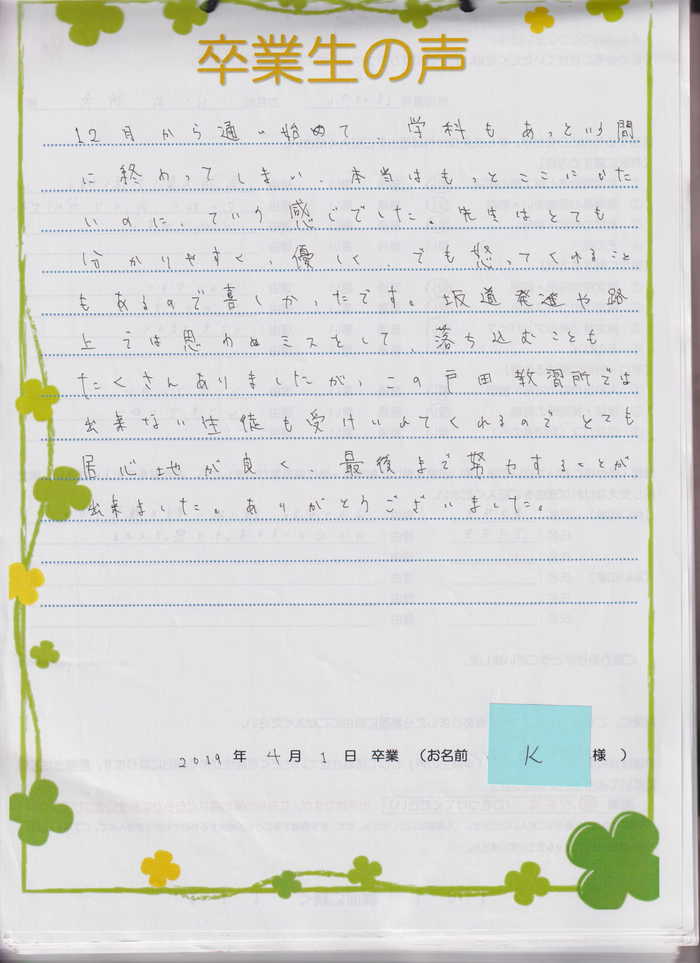 卒業生の声
12月から通い始めて、学科もあっという間
に終わってしまい、本当はもっとここにいた
いのに、ていう感じでした。先生はとても
分かりやすく、優しく、でも怒ってくれること
もあるので喜しかったです。坂道発進や路
上では思わぬミスをして、落ち込むことも
たくさんありましたが、この戸田教習所では
出来ない生徒も受けいれてくれるので、とても
居心地が良く、最後まで努力することが
出来ました。ありがとうございました。
2019年 4月 1日 卒業 (お名前 K 様 )